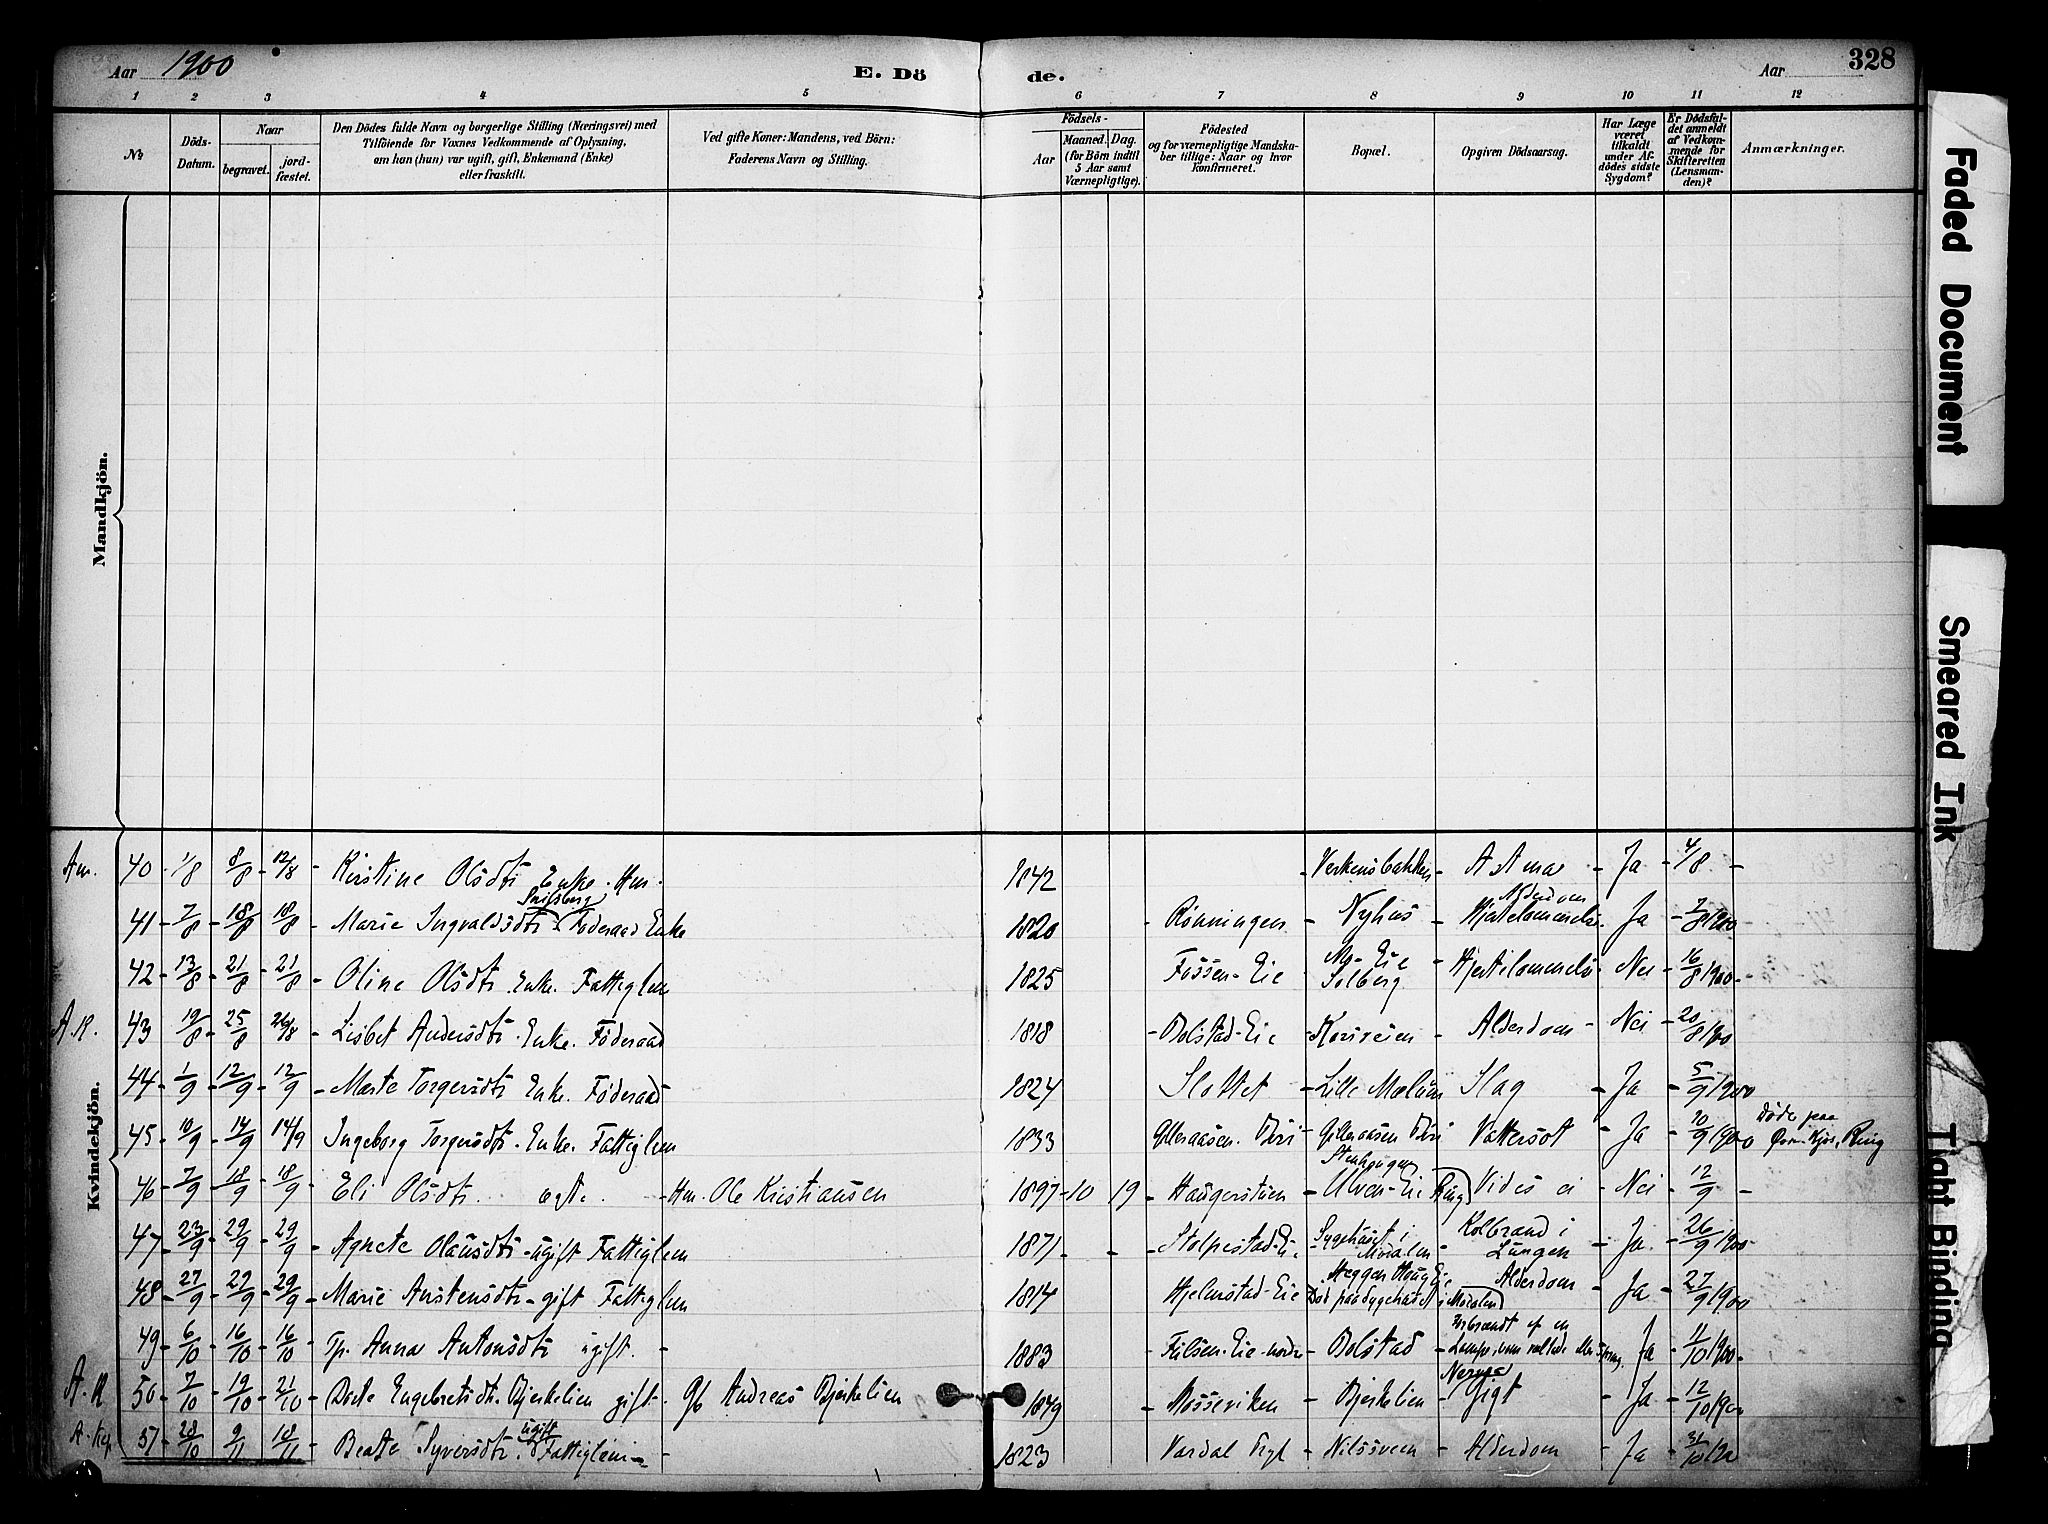 Aar 1900 E. Dö de. Aar 328
1 2 3 4 5 6 7 8 9 10 11 12
№ Döds-Datum. Naar begravet. jordfæstet. Den Dödes fulde Navn og borgerlige Stilling (Næringsvei) med Tilföiende for Voxnes Vedkommende af Oplysning, om han (hun) var ugift, gift, Enkemand (Enke) eller fraskilt. Ved gifte Koner: Mandens, ved Börn: Faderens Navn og Stilling. Födsels- Aar Maaned. Dag. (for Börn indtil 5 Aar samt Værnepligtige). Födested og for værnepligtige Mandskaber tillige: Naar og hvor Konfirmeret. Bopæl. Opgiven Dödsaarsag. Har Læge været tilkaldt under Afdödes sidste Sygdom? Er Dödsfaldet anmeldt af Vedkommende for Skifteretten (Lensmanden)? Anmærkninger.
Mandkjön.
Kvindekjön.
40 1/8 8/8 12/8 Kirstine Olsdtr Enke. Hm. 1842 Verkensbakken Astma Ja 4/8
41 7/8 18/8 18/8 Marie Ingvaldsdtr Føderaad Enke 1820 Rønningen Nyhus Alderdom Hjertelammelse Ja 7/8 1900
42 13/8 21/8 21/8 Oline Olsdtr Enke. Fattiglem 1825 Fossen-Eie Eie Solberg Hjertelammelse Nei 16/8 1900
A. K. 43 19/8 25/8 26/8 Lisbet Andersdtr Enke. Föderaad 1818 Bolstad-Eie Korsveien Alderdom Nei 20/8 1900
44 1/9 12/9 12/9 Marte Torgersdtr Enke. Föderaad 1824 Slottet Lille Mælum Slag Ja 5/9 1900
45 10/9 14/9 14/9 Ingeborg Torgersdtr. Enke. Fattiglem 1833 Gilleraasen Gilleraasen Vattersot Ja 10/9 1900 Døde paa Ring
46 7/9 18/9 18/9 Eli Olsdtr. egte. Hm. Ole Kristiansen 1897 10 19 Haugerstuen Stenhaugen Ulven-Eie Ring Vides ei Nei 12/9
47 23/9 29/9 29/9 Agnete Olausdtr ugift Fattiglem 1871 Stolpestad-Eie Sygehuset i Moelven Kolbrand i Lungen Ja 26/9 1900
48 27/9 29/9 29/9 Marie Anstensdtr gift Fattiglem 1814 Hjelmstad-Eie Død paa Sygehuset i Alderdom Ja 27/9 1900
49 6/10 16/10 16/10 Tp. Anna Antonsdtr ugift. 1883 Fulsen-Eie nordre Bolstad Forbrændt af en Lampe, som Ja 11/10 1900
A. K 50 7/10 19/10 21/10 Dorte Engebretsdtr. Bjerkelien gift Gb Andreas Bjerkelien 1849 Mosseviken Bjerkelien Gigt Ja 12/10 1900
51 28/10 9/11 18/11 Beate Syversdtr. ugift Fattiglem 1823 Vardal Nilssveen Alderdom Ja 31/10
Faded Document
Smeared Ink
Tight Binding